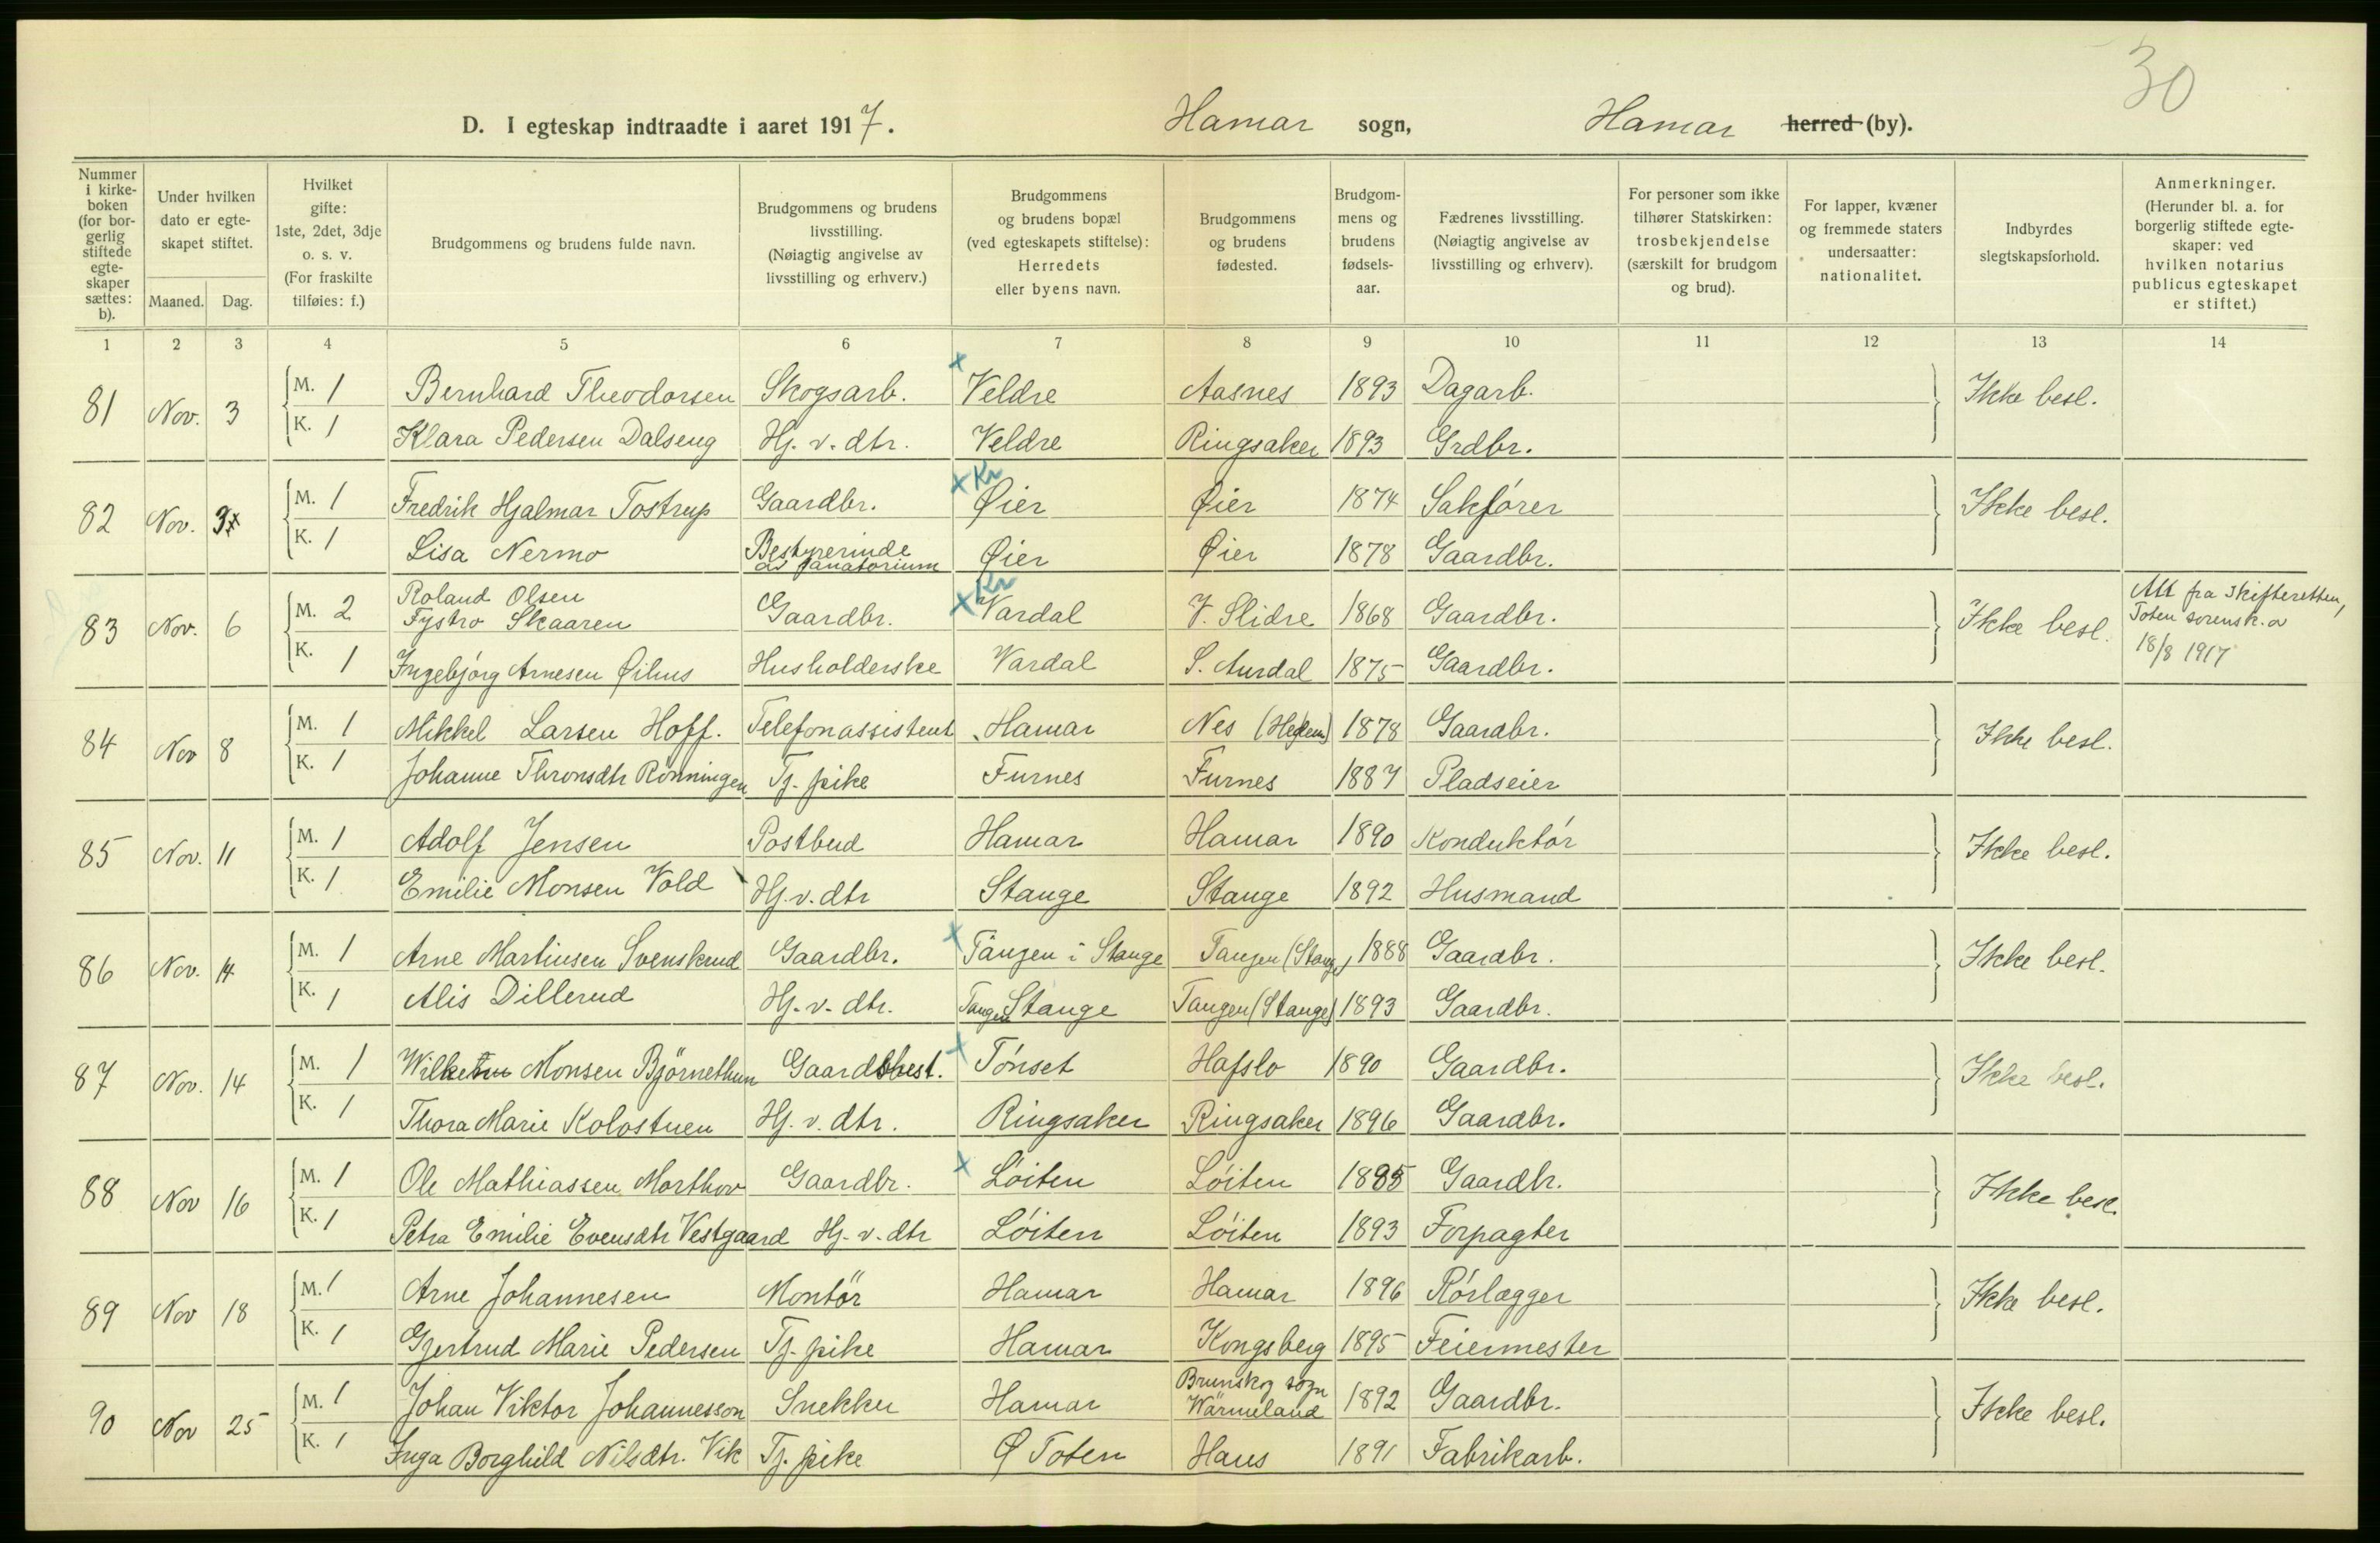 30
D. I egteskap indtraadte i aaret 1917. Hamar sogn, Hamar herred (by).
Nummer i kirkeboken (for borgerlig stiftede egteskaper sættes: b).
Under hvilken dato er egteskapet stiftet.
Maaned. Dag.
Hvilket gifte: 1ste, 2det, 3dje o. s. v. (For fraskilte tilføies: f.)
Brudgommens og brudens fulde navn.
Brudgommens og brudens livsstilling. (Nøiagtig angivelse av livsstilling og erhverv.)
Brudgommens og brudens bopæl (ved egteskapets stiftelse): Herredets eller byens navn.
Brudgommens og brudens fødested.
Brudgommens og brudens fødselsaar.
Fædrenes livsstilling. (Nøiagtig angivelse av livsstilling og erhverv).
For personer som ikke tilhører Statskirken: trosbekjendelse (særskilt for brudgom og brud).
For lapper, kvæner og fremmede staters undersaatter: nationalitet.
Indbyrdes slegtskapsforhold.
Anmerkninger. (Herunder bl. a. for borgerlig stiftede egteskaper: ved hvilken notarius publicus egteskapet er stiftet.)
1 2 3 4 5 6 7 8 9 10 11 12 13 14
81 Nov. 3 M. 1 Bernhard Theodorsen Skogsarb. x Veldre Aasnes 1893 Dagarb. Ikke besl.
K. 1 Klara Pedersen Dalseng Hj. v. dtr. Veldre Ringsaker 1893 Grdbr.
82 Nov. 3 M. 1 Fredrik Hjalmar Tostrup Gaardbr. x Kr Øier Øier 1874 Sakfører Ikke besl.
K. 1 Lisa Nermo Bestyrerinde av sanatorium Øier Øier 1878 Gaardbr.
83 Nov. 6 M. 2 Roland Olsen Fystro Skaaren Gaardbr. x Kr Vardal V. Slidre 1868 Gaardbr. Ikke besl. Att fra Skifteretten, Toten sorensk. 18/8 1917
K. 1 Ingebjørg Arnesen Øihus Husholderske Vardal S. Aurdal 1875 Gaardbr.
84 Nov 8 M. 1 Mikkel Larsen Hoff. Telefonassistent Hamar Nes (Hedem) 1878 Gaardbr. Ikke besl.
K. 1 Johanne Thronsdtr Rønningen Tj. pike Furnes Furnes 1887 Pladseier
85 Nov. 11 M. 1 Adolf Jensen Postbud Hamar Hamar 1890 Konduktør Ikke besl.
K. 1 Emilie Monsen Vold Hj. v. dtr Stange Stange 1892 Husmand
86 Nov. 14 M. 1 Arne Martinsen Svenskrud Gaardbr. x Tangen i Stange Tangen (Stange) 1888 Gaardbr. Ikke besl.
K. 1 Alis Dillerud Hj. v. dtr. Tangen Stange Tangen (Stange) 1893 Gaardbr.
87 Nov. 14 M. 1 Wilhelm Monsen Björnethun Gaardsbest. x Tønset Hafslo 1890 Gaardbr. Ikke besl.
K. 1 Thora Marie Kolostuen Hj. v. dtr. Ringsaker Ringsaker 1896 Gaardbr.
88 Nov 16 M. 1 Ole Mathiassen Morthov Gaardbr. x Løiten Løiten 1885 Gaardbr. Ikke besl.
K. 1 Petra Emilie Evensdtr Vestgaard Hj. v. dtr Løiten Løiten 1893 Forpagter
89 Nov 18 M. 1 Arne Johannesen Montör Hamar Hamar 1896 Rørlægger Ikke besl.
K. 1 Gjertrud Marie Pedersen Tj. pike Hamar Kongsberg 1895 Feiermester
90 Nov 25 M. 1 Johan Viktor Johannesson Snekker Hamar Brunskog sogn Wärmeland 1892 Gaardbr. Ikke besl.
K. 1 Inga Borghild Nilsdtr. Vik Tj. pike Ø Toten Haus 1891 Fabrikarb.